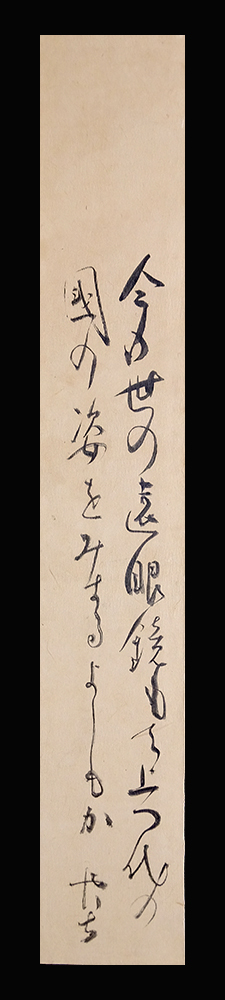 今の世の遠眼鏡もて上つ代の
國の姿をみるよしもか